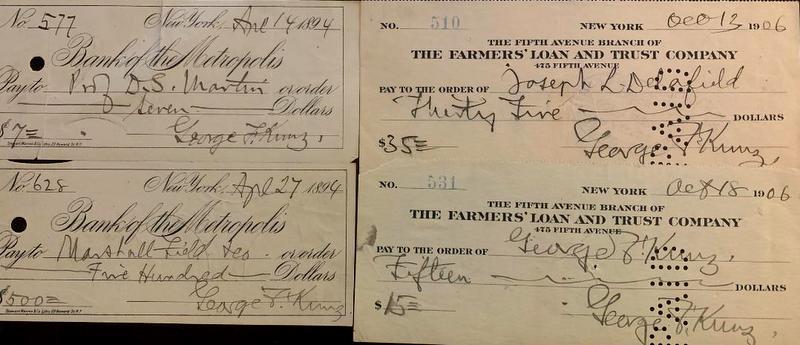 No. 577 New York, Apl 14 1894
Bank of the Metropolis
Pay to Prof D. S. Martin or order
Seven Dollars
$7= George F. Kunz.
No. 628 New York, Apl 27 1894
Bank of the Metropolis
Pay to Marshall Field & Co or order
Five Hundred Dollars
$500= George F. Kunz
NO. 510 NEW YORK Oct 13 1906
THE FIFTH AVENUE BRANCH OF
THE FARMERS' LOAN AND TRUST COMPANY
475 FIFTH AVENUE
PAY TO THE ORDER OF Joseph L. Delafield
Thirty Five DOLLARS
$35= George F. Kunz.
NO. 531 NEW YORK Oct 18 1906
THE FIFTH AVENUE BRANCH OF
THE FARMERS' LOAN AND TRUST COMPANY
475 FIFTH AVENUE
PAY TO THE ORDER OF George F. Kunz.
Fifteen DOLLARS
$15= George F. Kunz.